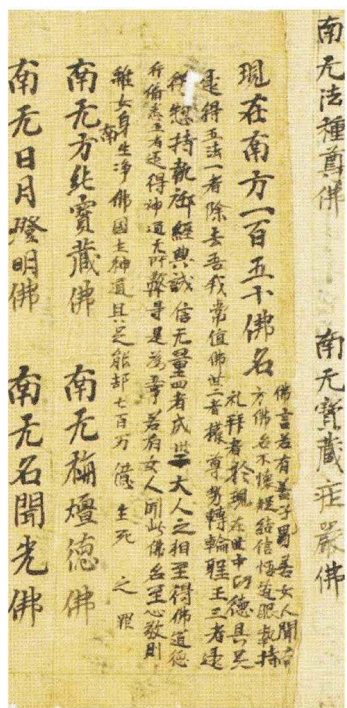 南无法種尊佛 南无寶藏庄嚴佛
現在南方一百五十佛名
佛言若有善子男善女人聞南
方佛名不懷疑結信悟篤服執持
礼拜者於現在世中功德具足
逮得五法一者除去吾我常值佛世二者獲尊勢轉輪聖王三者逮
得惣持執御經典誠信无量四者成丗二大人之相至得佛道德
行備悉五者逮得神道无所弊导是為章若有女人聞此佛名至心敬則
離女身生淨佛國土神道具足能却七百万億生死之罪
南
南无方此寶藏佛 南无栴檀德佛
南无日月燈明佛 南无名聞光佛